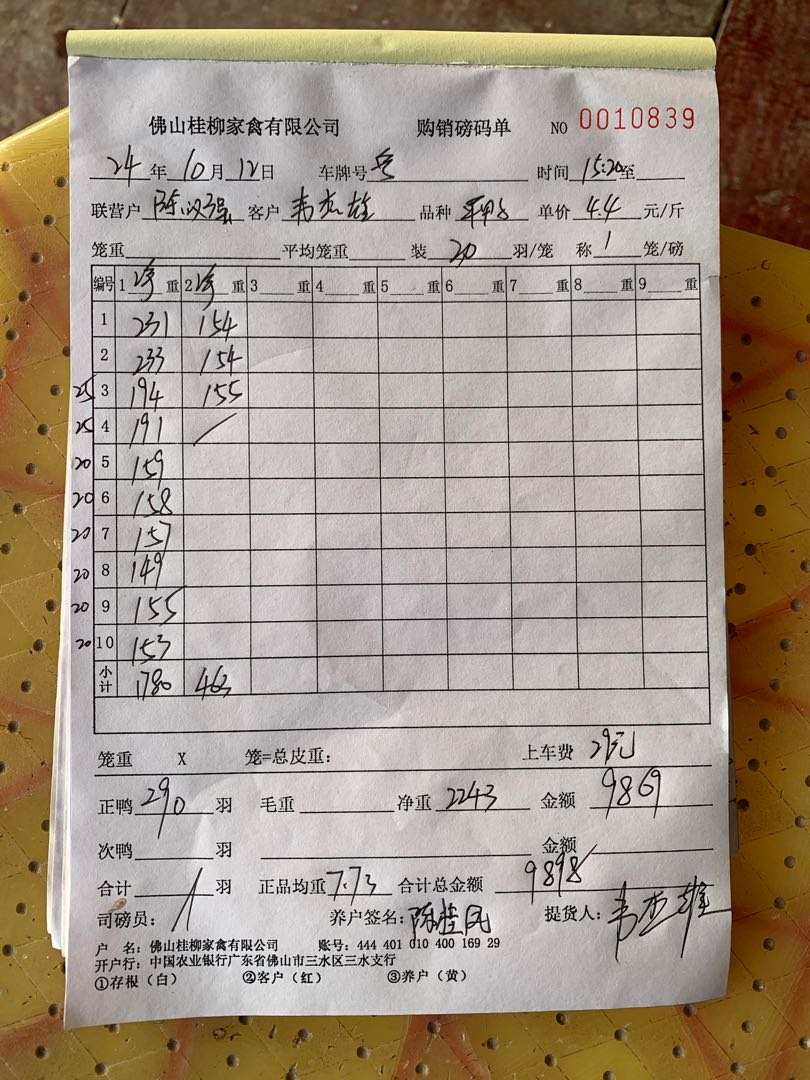 佛山桂柳家禽有限公司 购销磅码单 NO 0010839
24年10月12日 车牌号 时间15:20至
联营户 陈汉强 客户 韦杰雄 品种 单价 4.4 元/斤
笼重 平均笼重 装 20 羽/笼 称 1 笼/磅
编号 1 净 重 2 净 重 3 重 4 重 5 重 6 重 7 重 8 重 9 重
1 231 154
2 233 154
25 3 194 155
25 4 191 /
20 5 159
20 6 158
20 7 157
20 8 149
20 9 155
20 10 153
小计 1780 463
笼重 X 笼=总皮重: 上车费 29元
正鸭 290 羽 毛重 净重 2243 金额 9869
次鸭 羽 金额
合计 羽 正品均重 7.73 合计总金额 9898
司磅员: 养户签名: 陈桂凤 提货人: 韦杰雄
户 名: 佛山桂柳家禽有限公司 账号: 444 401 010 400 169 29
开户行: 中国农业银行广东省佛山市三水区三水支行
①存根(白) ②客户(红) ③养户(黄)